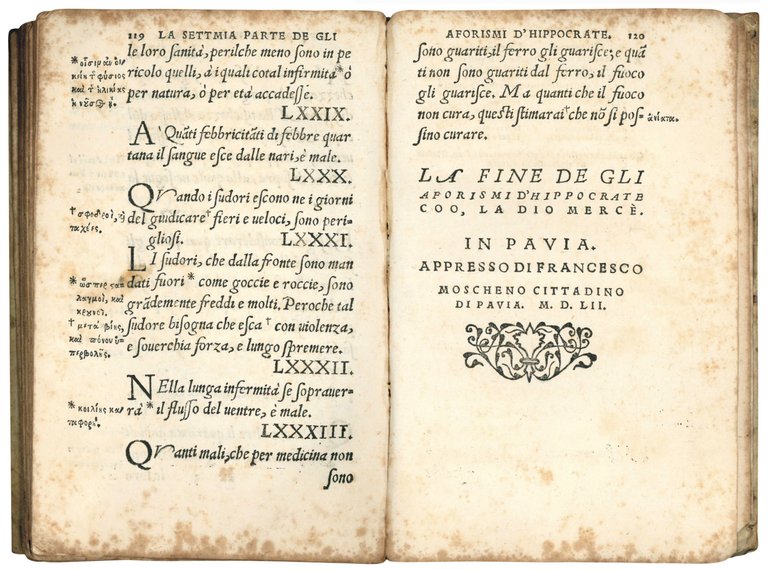 119 LA SETTMIA PARTE DE GLI
le loro sanità, perilche meno sono in pe
ricolo quelli, à i quali cotal infirmità* ò
per natura, ò per età accadesse.
LXXIX.
A' Quãti febbricitãti di febbre quar
tana il sangue esce dalle nari, è male.
LXXX.
Quando i sudori escono ne i giorni
del giudicare† fieri e ueloci, sono peri-
gliosi.
LXXXI.
LI sudori, che dalla fronte sono man
dati fuori* come goccie et roccie, sono
grãdemente freddi e molti. Peroche tal
sudore bisogna che esca† con uiolenza,
e souerchia forza, e lungo spremere.
LXXXII.
NElla lunga infermità se soprauer-
rà* il flusso del uentre, è male.
LXXXIII.
Quanti mali, che per medicina non
sono
*ὡσπερ σα
λαγμοὶ, καὶ
† μετὰ βίης,
καὶ πόνου ὑ-
περβολῆς.
*κοιλίης κα-
ταφορή.
AFORISMI D'HIPPOCRATE. 120
sono guariti, il ferro gli guarisce; e quã
ti non sono guariti dal ferro, il fuoco
gli guarisce. Ma quanti che il fuoco
non cura, questi stimarai† che nõ si pos-
sino curare.
ἀνίατα.
LA FINE DE GLI
AFORISMI D'HIPPOCRATE
COO, LA DIO MERCÈ.
IN PAVIA.
APPRESSO DI FRANCESCO
MOSCHENO CITTADINO
DI PAVIA. M. D. LII.